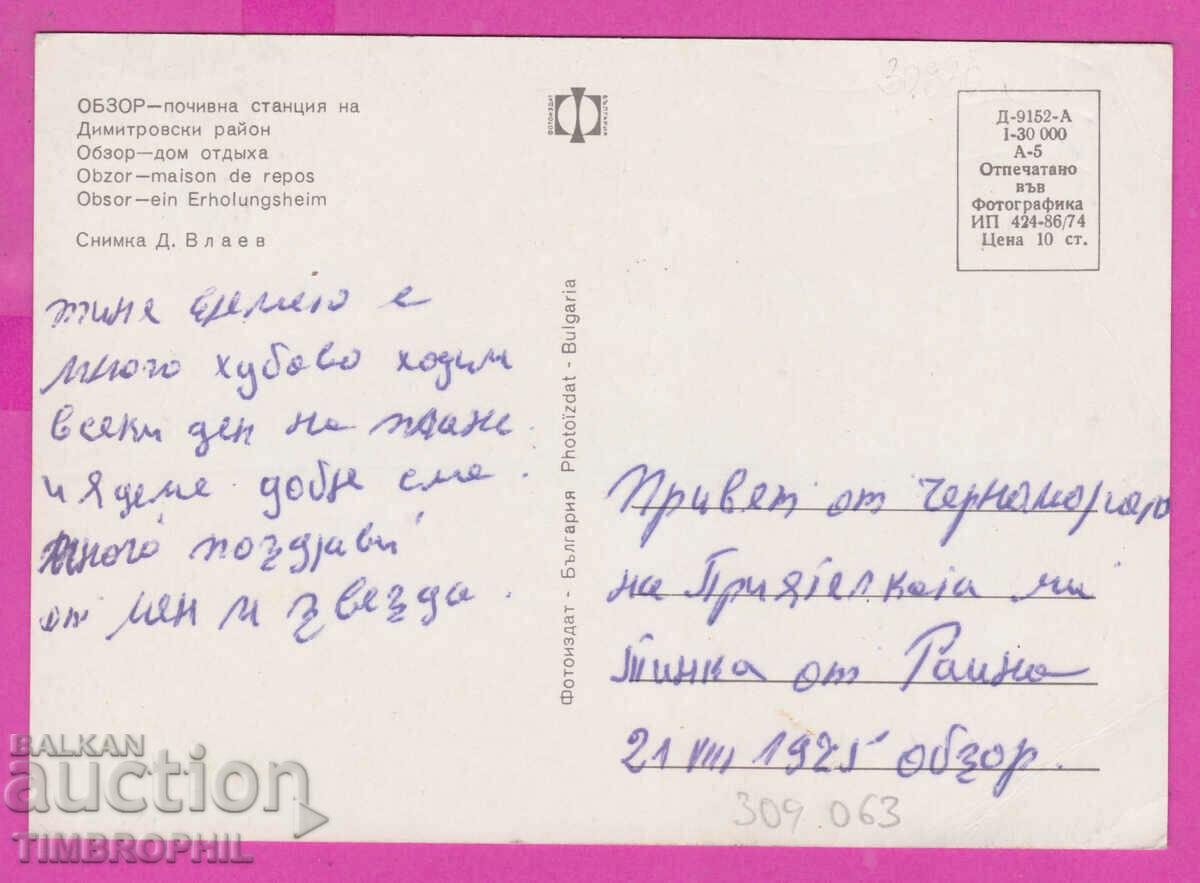 ОБЗОР—почивна станция на
Димитровски район
Обзор—дом отдыха
Obzor—maison de repos
Obsor—ein Erholungsheim
Снимка Д. Влаев
ФОТОИЗДАТ
БЪЛГАРИЯ
Д-9152-А
1-30 000
А-5
Отпечатано
във
Фотографика
ИП 424-86/74
Цена 10 ст.
Фотоиздат - България Photoïzdat - Bulgaria
тине времето е
много хубаво ходим
всеки ден на плаж
и ядеме добре сме.
много поздрави
от мен и звезда.
Привет от Черноморето
на Приятелката ми
Тинка от Раина
21 VIII 1975 обзор.
309 063
BALKAN
auction
TIMBROPHIL